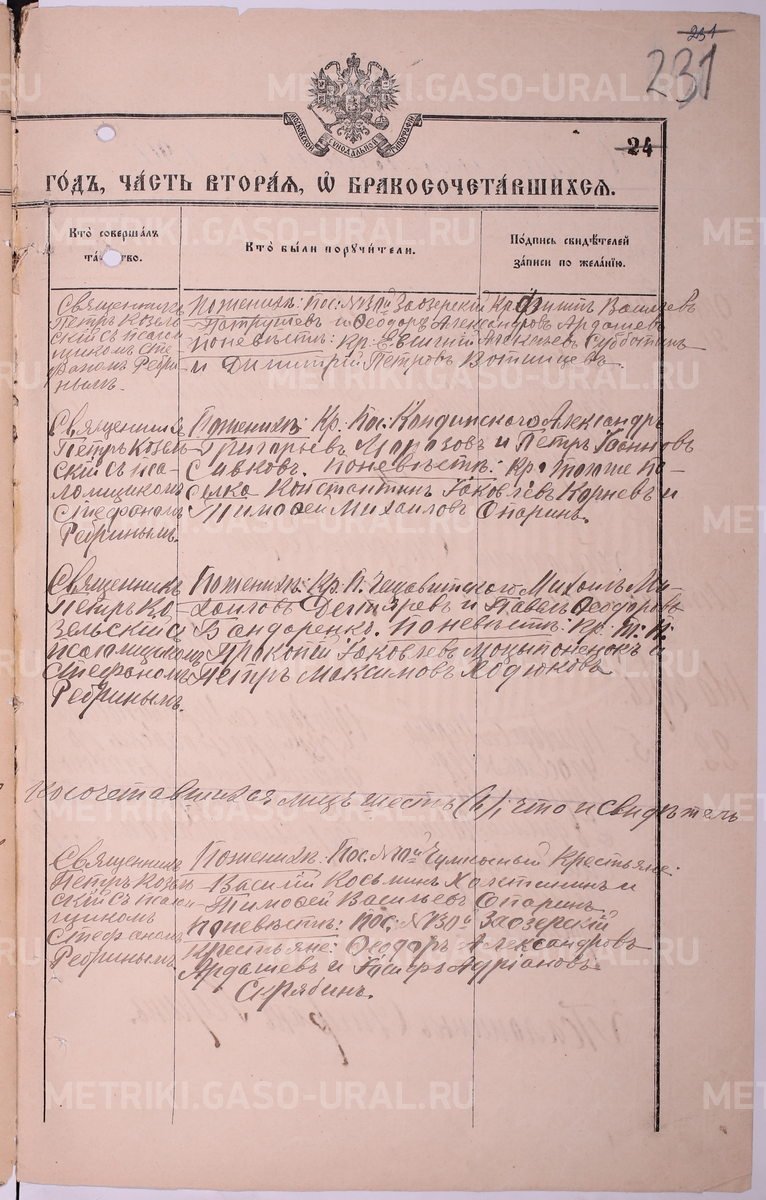 231
231
МОСКОВСКОЙ СѴНОДАЛЬНОЙ ТИПОГРАФІИ
24
ГОДЪ, ЧАСТЬ ВТОРАЯ, Ѡ БРАКОСОЧЕТАВШИХСЯ.
Кто совершалъ таинство.
Кто были поручители.
Подпись свидѣтелей записи по желанію.
Священникъ
Петръ Козель-
скій съ псалом-
щикомъ Сте-
фаномъ Ребри-
нымъ.
По женихѣ: Пос. № 3й Заозерскій Кр. Василіевъ
Патрушев и Ѳеодоръ Александровъ Ардашевъ
По невѣстѣ: Кр. Евгеній Субботинъ
и Димитрій Петровъ
Священникъ
Петръ Козель-
скій съ пса-
ломщикомъ
Стефаномъ
Ребринымъ.
По женихѣ: Кр. Пос. Кондинскаго Александръ
Григорьевъ Морозовъ и Петръ Іоанновъ
Сивковъ. По невѣстѣ: Кр. того же по-
селка Константинъ Іаковлевъ Корневъ и
Тимофей Михаиловъ Опаринъ.
Священникъ
Петръ Ко-
зельскій съ
псаломщикомъ
Стефаномъ
Ребринымъ.
По женихѣ: Кр. П. Михаилъ Ми-
хаиловъ Дегтяревъ и Павелъ Ѳеодоровъ
Бондаренко. По невѣстѣ: Кр. т. п.
Прокопій Іаковлевъ и
Петръ Максимовъ Ходюковъ
косочетавшихся лицъ шесть (6), что и свидѣтель
Священникъ
Петръ Козель-
скій съ псалом-
щикомъ
Стефаномъ
Ребринымъ
По женихѣ: Пос. Крестьяне:
Василій Косьминъ и
Тимофей Васильевъ Опаринъ
По невѣстѣ: Пос. № 3й Заозерскій
Крестьяне: Ѳеодоръ Александровъ
Ардашевъ и Петръ Адріановъ
Скрябинъ.
METRIKI.GASO-URAL.RU